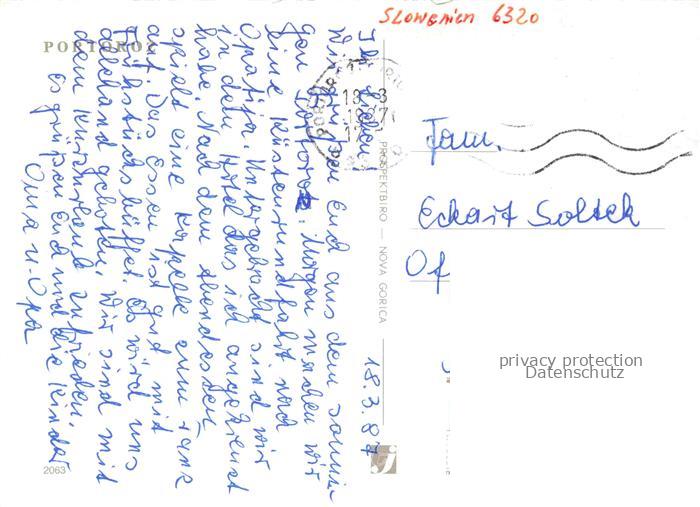 Slowenien 6320
PORTOROŽ
18.3.87
Ihr Lieben!
Wir grüßen Euch aus dem sonni-
gen Portorož. Morgen machen wir
eine Küstenrundfahrt nach
Opatija. Untergebracht sind wir
in dem Hotel das ich angekreuzt
habe. Nach dem Abendessen
spielt eine Kapelle zum Tanz
auf. Das Essen ist gut mit
Frühstücksbüffet. Es wird uns
allerhand geboten. Wir sind mit
dem Kurzurlaub zufrieden.
Es grüßen Euch und die Kinder
Oma u. Opa
PROSPEKTBIRO — NOVA GORICA
2063
Fam.
Eckart Soltek
Of
privacy protection
Datenschutz